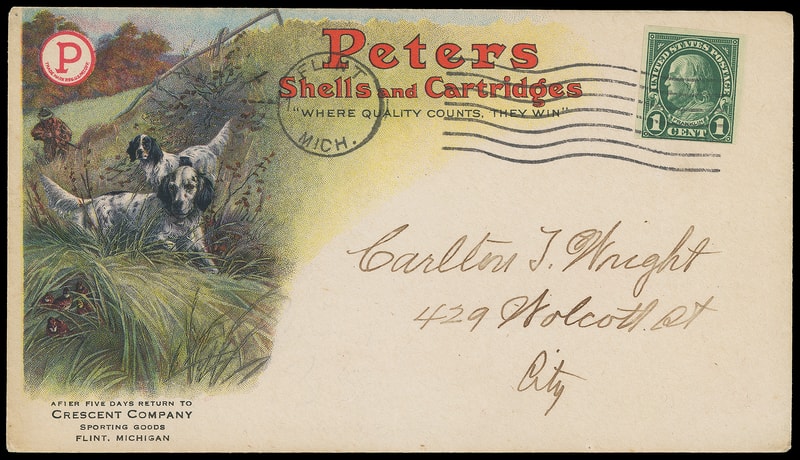 P
TRADE MARK REG. & GENUINE
Peters
Shells and Cartridges
"WHERE QUALITY COUNTS, THEY WIN"
FLINT
MICH.
UNITED STATES POSTAGE
FRANKLIN
1 CENT 1
Carlton T. Wright
429 Wolcott St
City
AFTER FIVE DAYS RETURN TO
CRESCENT COMPANY
SPORTING GOODS
FLINT, MICHIGAN